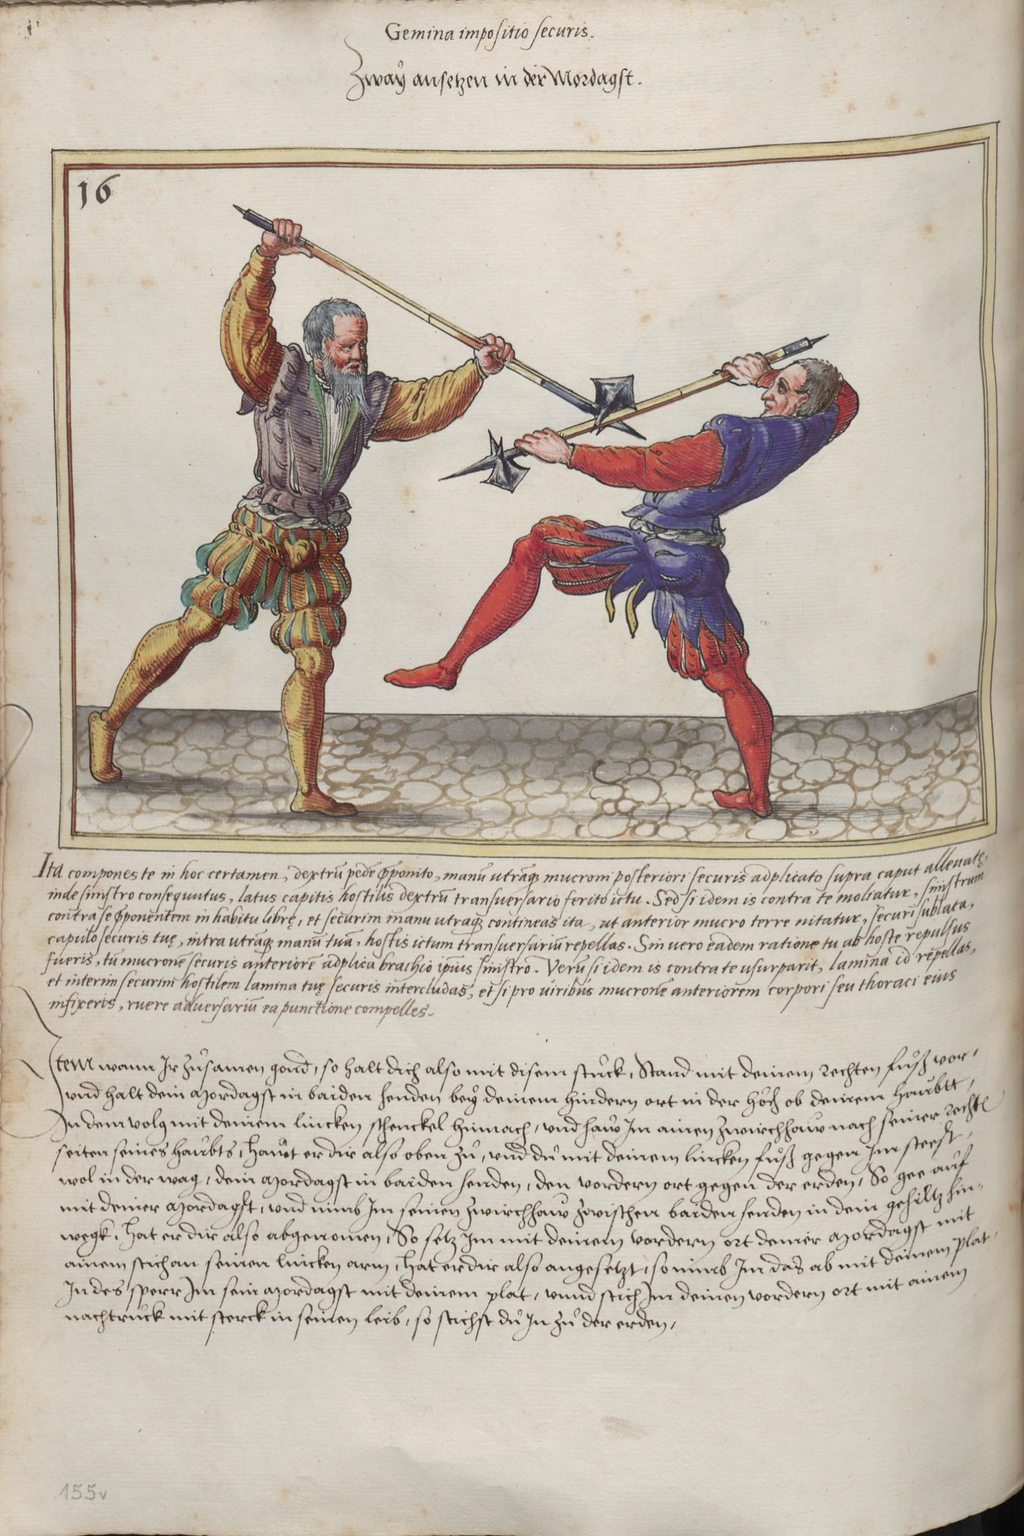 Gemina impositio securis.
Zwaÿ ansetzen in der Mordagst.
16
Ita compones te in hoc certamen, dextrũ pede p̃ponito, manũ utraq; mucroni posteriori securis adplicato supra caput allevate,
inde sinistro consequutus, latus capitis hostilis dextrũ transversario ferito ictu. Sed si idem is contra te moliatur, sinistrum
contra se p̃ponentem in habitu librę, et securim manu utraq; contineas ita, ut anterior mucro terre nitatur, securi sublata,
capulo securis tuę, intra utraq; manũ tuã, hostis ictum transversariũ repellas. Sin vero eadem ratione tu ab hoste repulsus
fueris, tũ mucronẽ securis anteriorẽ adplica brachio ipsius sinistro. Verũ si idem is contra te usurparit, lamina id repellas,
et interim securim hostilem lamina tuę securis intercludas, et si pro viribus mucronẽ anteriorem corpori seu thoraci eius
infixeris, ruere adversariũ ea punctione compelles.
Item wann Ir zůsamen gond, so halt dich also mit disem stuck, Stand mit deinem rechten fůß vor,
vnd halt dein mordagst in baiden henden beÿ deinem hindern ort in der höch ob deinem haubtt,
In dem volg mit deinem lincken schenckel hinnach, vnd haw Im ainen zwirchhaw nach seiner rechte
seiten seines haubts, hawt er dir also oben zů, vnd dů mit deinem lincken fůß gegen Im steest,
wol in der wag, dein mordagst in baiden henden, den vordern ort gegen der erden, So gee auf
mit deiner mordagst, vnd nimb Im seinen zwirchhaw zwischen baiden henden in dein gehiltz hin=
wegk, hat er dir also abgenomen, So setz Im mit deinem vordern ort deiner mordagst mit
ainem stich an seinen lincken arm, hat er dir also angesetzt, so nimb Im das ab mit deinem plat,
In des sperr Im sein mordagst mit deinem plat, vnnd stich Im deinen vordern ort mit ainem
nachtruck mit sterck in seinen leib, so stichst dů In zů der erden,
155v